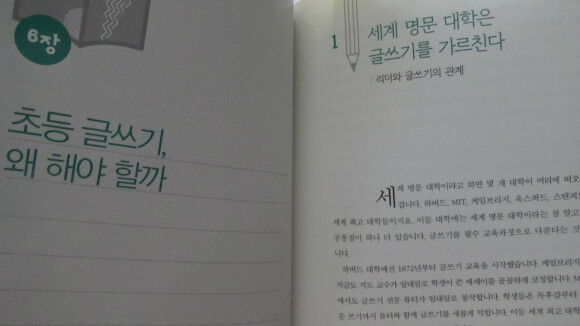 6장
초등 글쓰기,
왜 해야 할까
1
세계 명문 대학은
글쓰기를 가르친다
: 리더와 글쓰기의 관계
세계 명문 대학이라고 하면 몇 개 대학이 머리에 떠오
겁니다. 하버드, MIT, 케임브리지, 옥스퍼드, 스탠퍼
세계 최고 대학들이지요. 이들 대학에는 세계 명문 대학이라는 점 말고
공통점이 하나 더 있습니다. 글쓰기를 필수 교육과정으로 다룬다는 것
니다.
하버드 대학에선 1872년부터 글쓰기 교육을 시작했습니다. 케임브리지
지금도 지도 교수가 일대일로 학생이 쓴 에세이를 꼼꼼하게 코칭합니다. M
에서도 글쓰기 전문 튜터가 일대일로 첨삭합니다. 학생들은 독후감부터
문 쓰기까지 튜터와 함께 글쓰기를 새롭게 익힙니다. 이들 세계 최고 대학